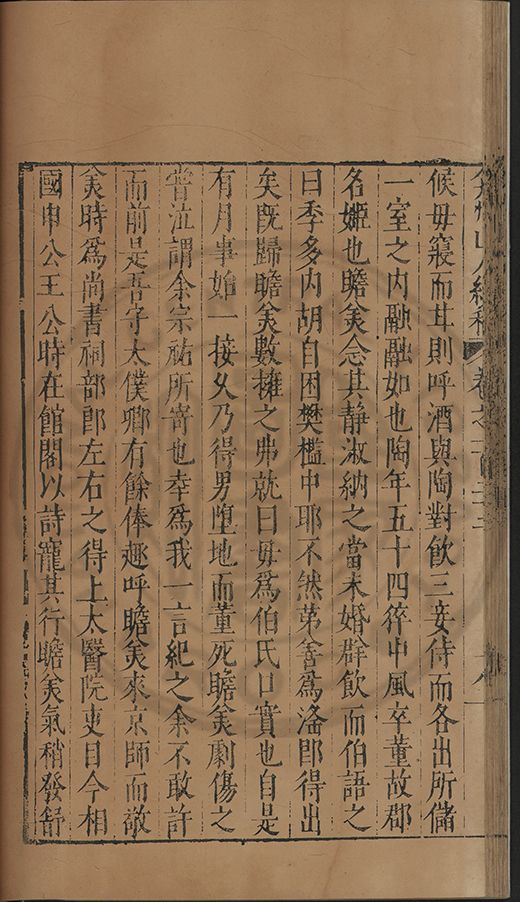 山人續稿 卷之 八
候毋寢而甘則呼酒與陶對飲三妾侍而各出所儲
一室之内融融如也陶年五十四猝中風卒董故郡
名姬也瞻美念其靜淑納之當未婚群飲而伯語之
曰季多内胡自困樊檻中耶不然第爲郎得出
矣旣歸瞻美數擁之弗就曰毋爲伯氏口實也自是
有月事始一接久乃得男墮地而董死瞻美劇傷之
嘗泣謂余宗祐所寄也幸爲我一言紀之余不敢許
而前是吾守太僕卿有餘俸趣呼瞻美來京師而敬
美時爲尚書祠部郎左右之得上太醫院吏目今相
國申公王公時在館閣以詩寵其行瞻美氣稍發舒